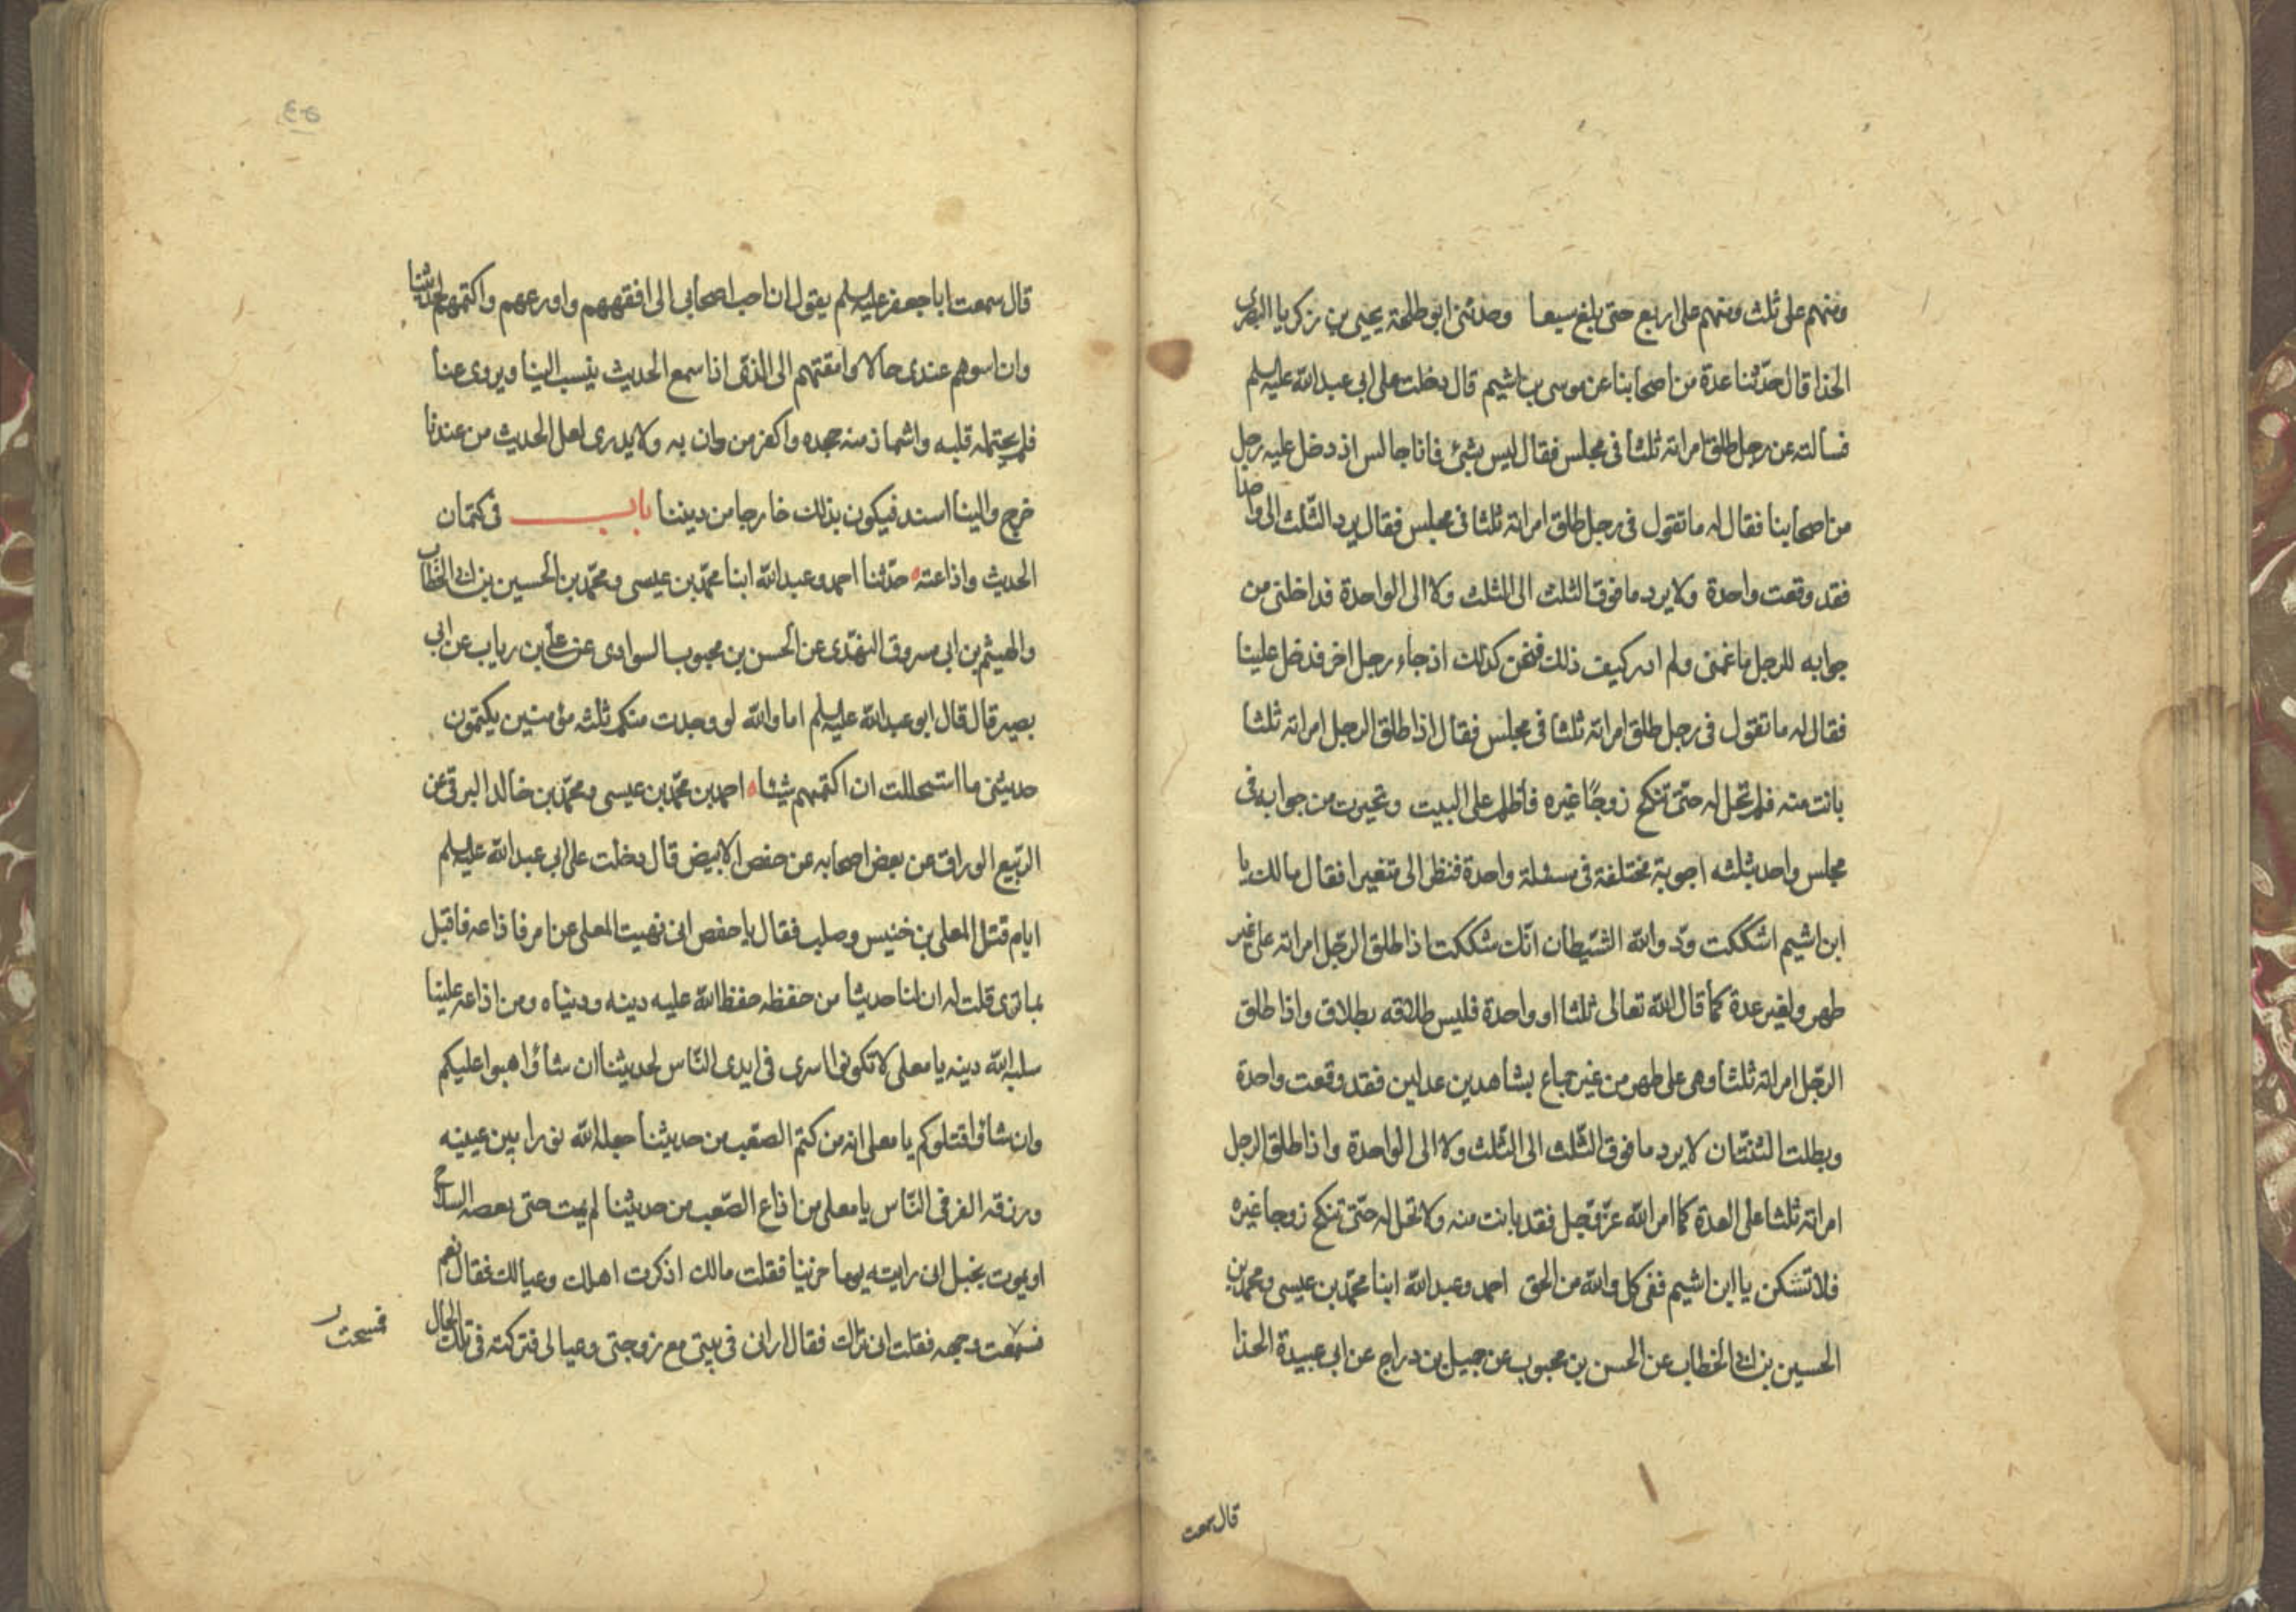 ومنهم على ثلث ومنهم على اربع حتى بلغ سبعا وحدثنى ابو طلحة يحيى بن زكريا البصرى
الحذا قال حدّثنا عدة من اصحابنا عن موسى بن اشيم قال دخلت على ابى عبد الله عليه السلم
فسالته عن رجل طلق امراته ثلثا فى مجلس فقال ليس بشئ فانا جالس اذ دخل عليه رجل
من اصحابنا فقال له ما تقول فى رجل طلق امراته ثلثا فى مجلس فقال يرد الثّلث الى واحدة
فقد وقعت واحدة ولا يرد ما فوق الثلث الى الثلث ولا الى الواحدة فداخلنى من
جوابه للرجل ما غمنى ولم ادر كيف ذلك فنحن كذلك اذ جاء رجل اخر فدخل علينا
فقال له ما تقول فى رجل طلق امراته ثلثا فى مجلس فقال اذا طلق الرجل امراته ثلثا
بانت منه فلم تحل له حتّى تنكح زوجًا غيره فأظلم على البيت وتحيرت من جوابه فى
مجلس واحد بثلثه اجوبة مختلفة فى مسئلة واحدة فنظر الى متغيرا فقال مالك يا
ابن اشيم اشككت ودّ والله الشّيطان انّك شككت اذا طلق الرّجل امراته على غير
طهر ولغير عدة كما قال الله تعالى ثلثا او واحدة فليس طلاقه بطلاق واذا طلق
الرّجل امراته ثلثا وهى على طهر من غير جماع بشاهدين عدلين فقد وقعت واحدة
وبطلت الثنتان لا يرد ما فوق الثّلث الى الثّلث ولا الى الواحدة واذا طلق الرجل
امراته ثلثا على العدة كما امر الله عزّ وجل فقد بانت منه ولا تحل له حتّى تنكح زوجا غيره
فلا تشكن يا ابن اشيم ففى كل والله من الحق احمد وعبد الله ابنا محمّد بن عيسى ومحمد بن
الحسين بن ابى الخطاب عن الحسن بن محبوب عن جميل بن دراج عن ابى عبيدة الحذا
قال سمعت
قال سمعت ابا جعفر عليه السلم يقول ان احب اصحابى الى افقههم واورعهم واكتمهم لحديثنا
وان اسوهم عندى حالا وامقتهم الى الذى اذا سمع الحديث ينسب الينا ويروى عنا
فلم يحتمله قلبه واشماز منه جحده واكفر من دان به ولا يدرى لعل الحديث من عندنا
خرج والينا اسند فيكون بذلك خارجا من ديننا باب فى كتمان
الحديث واذاعته حدّثنا احمد وعبد الله ابنا محمّد بن عيسى ومحمّد بن الحسين بن ابى الخطّاب
والهيثم بن ابى مسروق النهدّى عن الحسن بن محبوب السوادى عن علىّ بن رياب عن ابى
بصير قال قال ابو عبد الله عليه السلم اما والله لو وجدت منكم ثلثه مؤمنين يكتمون
حديثى ما استحللت ان اكتمهم شيئا احمد بن محمّد بن عيسى ومحمّد بن خالد البرقى عن
الرّبيع الوراق عن بعض اصحابه عن حفص الابيض قال دخلت على ابى عبد الله عليه السلم
ايام قتل المعلى بن خنيس وصلب فقال يا حفص انى نهيت المعلى عن امر فاذاعه فاقبل
بما ترى قلت له ان لنا حديثا من حفظه حفظ الله عليه دينه ودنياه ومن اذاعه علينا
سلبه الله دينه يا معلى لا تكونوا اسرى فى ايدى النّاس لحديثنا ان شاؤا اهبوا عليكم
وان شاؤا قتلوكم يا معلى انه من كتم الصّعب من حديثنا جعله الله نورا بين عينيه
ورزقه الفر فى النّاس يا معلى من اذاع الصّعب من حديثنا لم يمت حتى يعضه السلاح
او يموت بخبل انى رايته يوما حزينا فقلت مالك اذكرت اهلك وعيالك فقال نعم
فسمعت وجهه فقلت انى تراك فقال ارانى فى بيتى مع زوجتى وعيالى فتركته فى تلك الحال
فمسحت